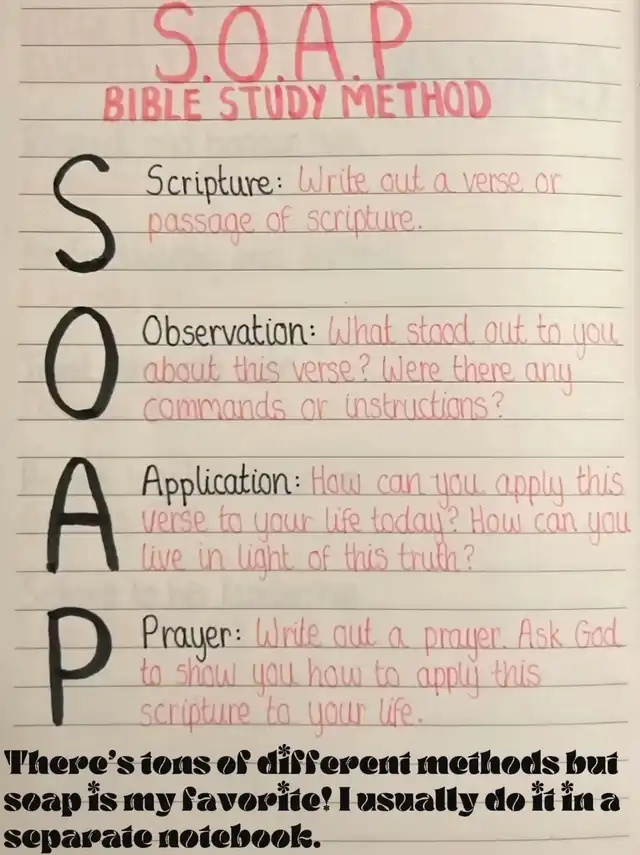 S.O.A.P
BIBLE STUDY METHOD
S
Scripture: Write out a verse or
passage of scripture.
O
Observation: What stood out to you
about this verse? Were there any
commands or instructions?
A
Application: How can you apply this
verse to your life today? How can you
live in light of this truth?
P
Prayer: Write out a prayer. Ask God
to show you how to apply this
scripture to your life.
There's tons of different methods but
soap is my favorite! I usually do it in a
separate notebook.